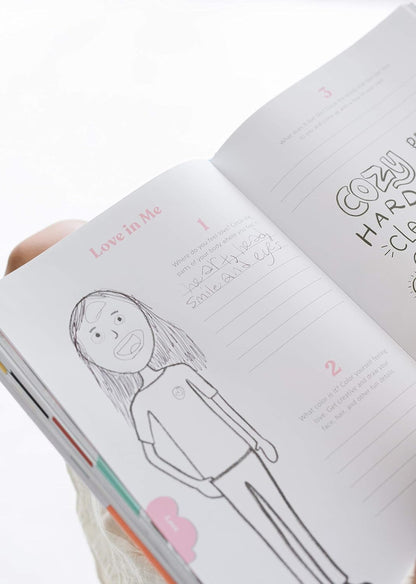 Love in Me
1
Where do you feel love? Circle the
parts of your body where you feel
heart, head,
smile and eyes
2
What color is it? Color yourself feeling
love. Get creative and draw your
face, hair, and other fun details.
Love
3
COZY
HARD